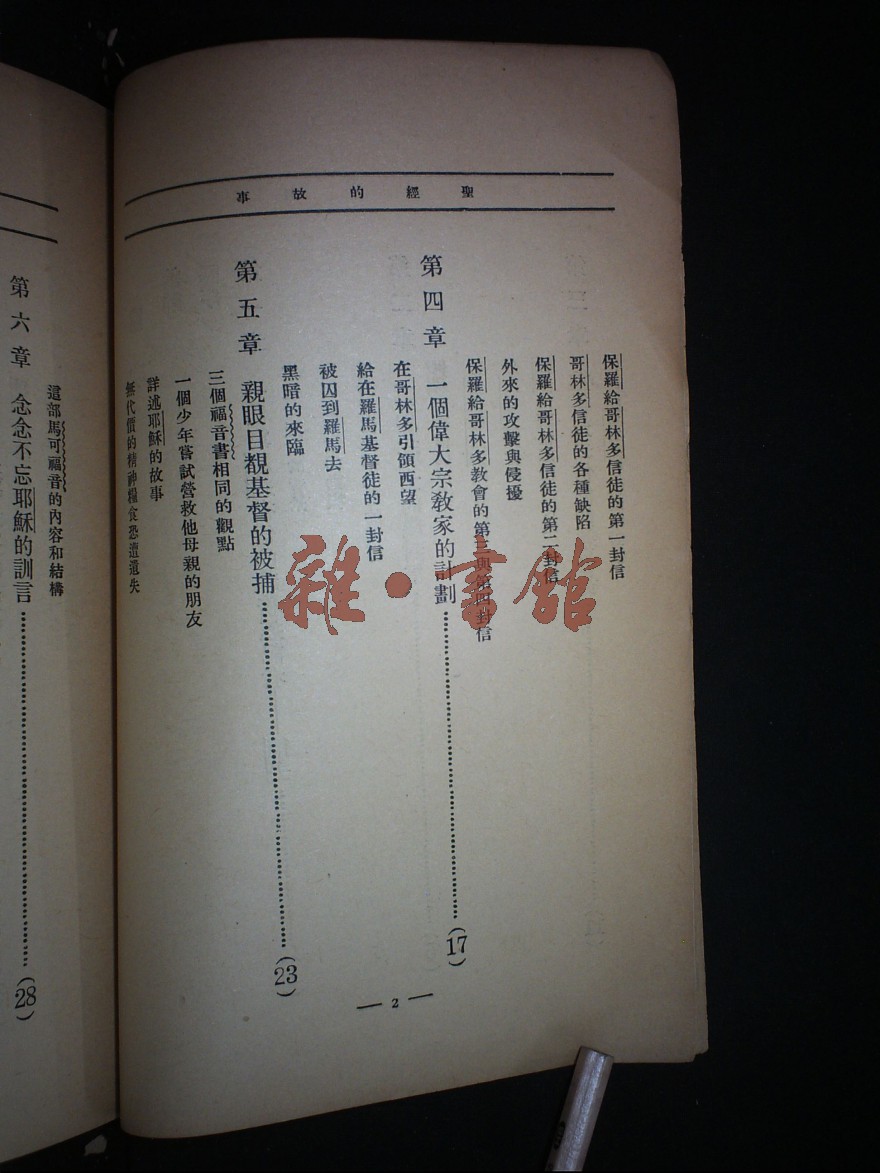 聖經的故事
保羅給哥林多信徒的第一封信
哥林多信徒的各種缺陷
保羅給哥林多信徒的第二封信
外來的攻擊與侵擾
保羅給哥林多教會的第三與第四封信
第四章 一個偉大宗教家的計劃……(17)
在哥林多引領西望
給在羅馬基督徒的一封信
被囚到羅馬去
黑暗的來臨
第五章 親眼目覩基督的被捕……(23)
三個福音書相同的觀點
一個少年嘗試營救他母親的朋友
詳述耶穌的故事
無代價的精神糧食恐遭遺失
— 2 —
這部馬可福音的內容和結構
第六章 念念不忘耶穌的訓言……(28)
雜·書館